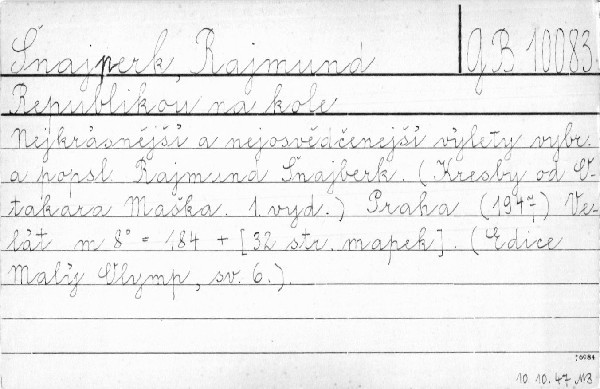 Šnajperk, Rajmund
GB 10083
Republikou na kole
Nejkrásnější a nejosvědčenejší výlety vybr.
a popsl. Rajmund Šnajberk. (Kresby od O-
takara Maška. 1. vyd.) Praha (1947) Ve-
lát m 8° = 184 + [32 str. mapek]. (Edice
Malý Olymp, sv. 6.).
10 10. 47